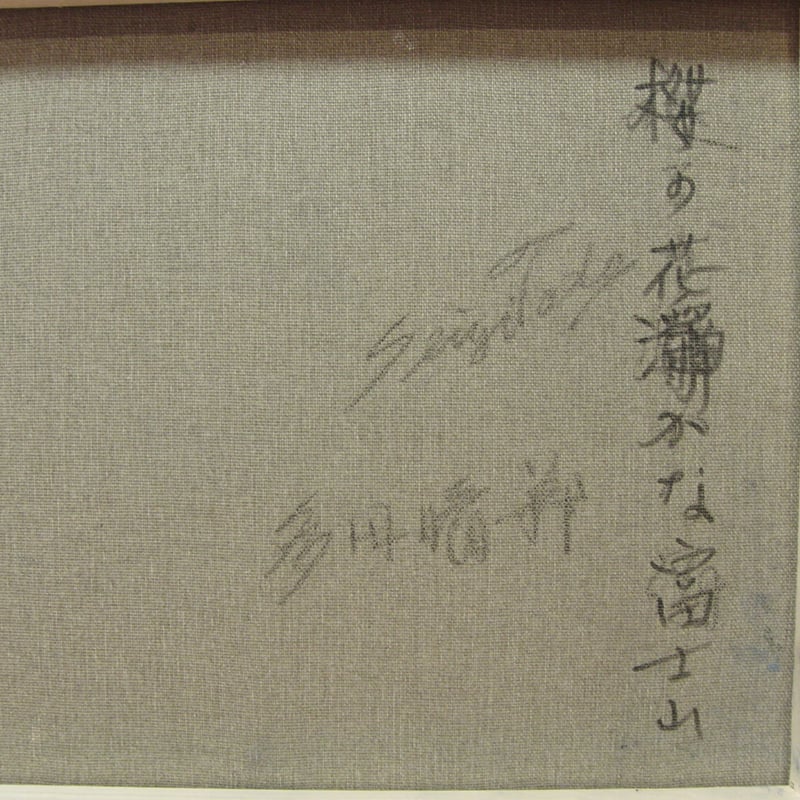 の花 かな富士山
Seigi Tada
多田晴